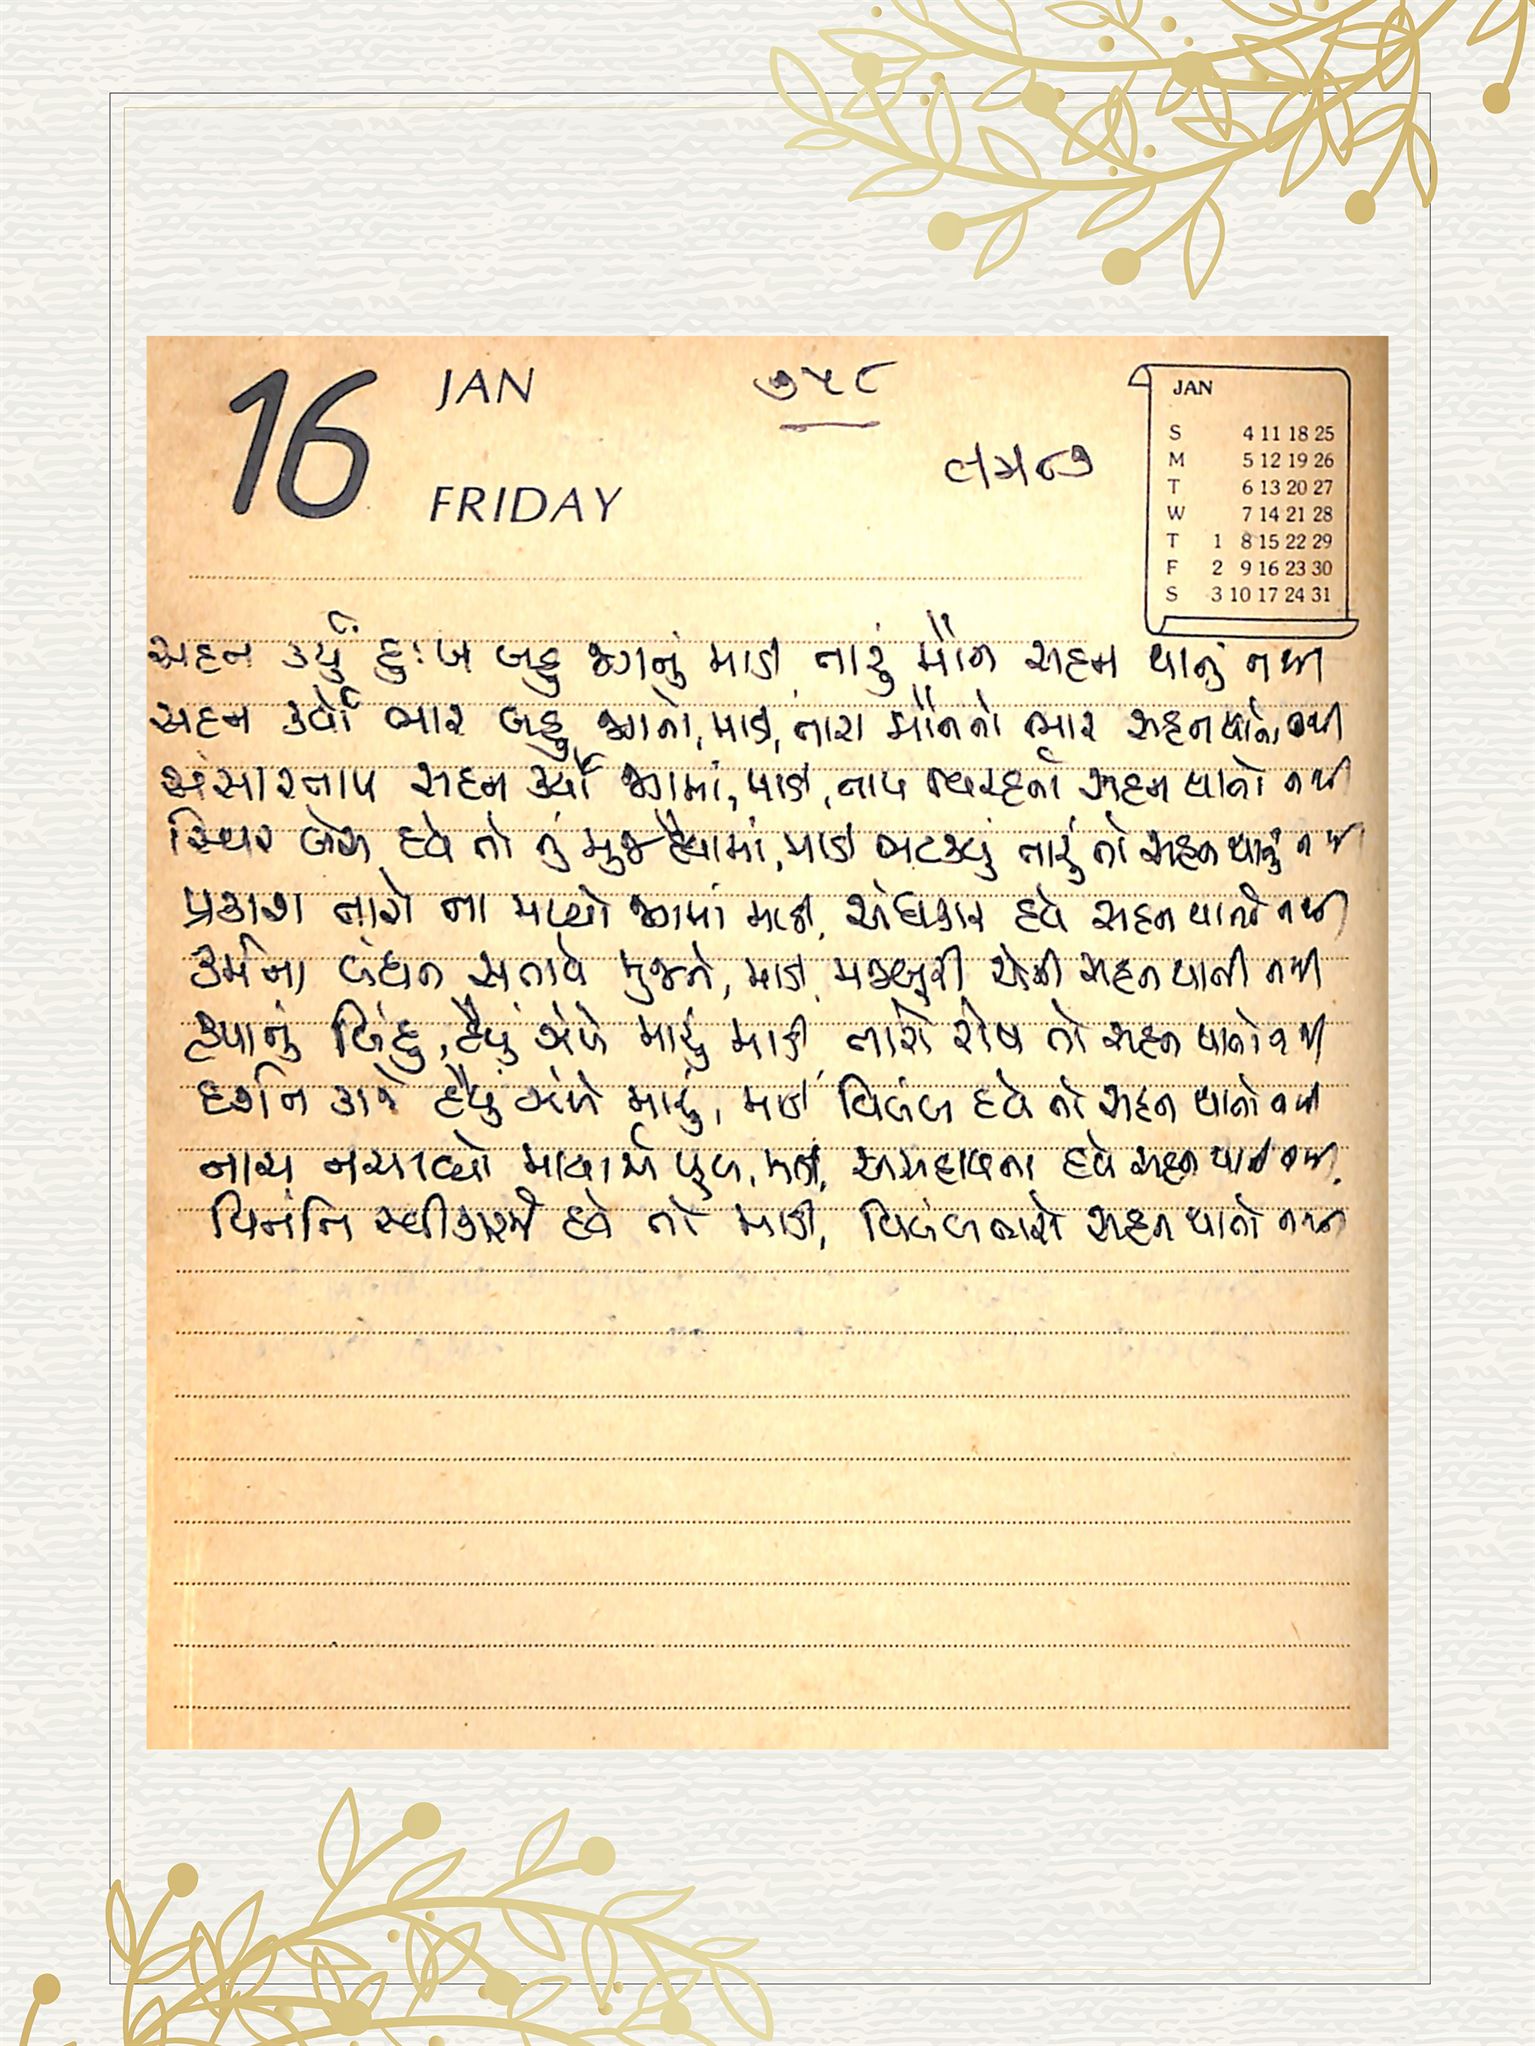 16 JAN ૭૫૮
FRIDAY
JAN
S 4 11 18 25
M 5 12 19 26
T 6 13 20 27
W 7 14 21 28
T 1 8 15 22 29
F 2 9 16 23 30
S 3 10 17 24 31
સહન કર્યું દુઃખ બહુ જગનું માડી, તારું મૌન સહન થાતું નથી
સહન કર્યો ભાર બહુ જગનો, માડી, તારા મૌનનો ભાર સહન થાતો નથી
સંસારતાપ સહન કર્યો જગમાં, માડી, તાપ વિરહનો સહન થાતો નથી
સ્થિર બેસ હવે તો તું મુજ હૈયામાં, માડી ભટકવું તારું તો સહન થાતું નથી
પ્રકાશ તારો ના મળ્યો જગમાં માડી, અંધકાર હવે સહન થાતો નથી
કર્મના બંધન સતાવે મુજને, માડી, મજબૂરી એની સહન થાતી નથી
કૃપાનું બિંદુ, હૈયું ઝંખે મારું માડી, તારો રોષ તો સહન થાતો નથી
દર્શન કાજે હૈયું ઝંખે મારું, માડી વિલંબ હવે તો સહન થાતો નથી
નાચ નચાવ્યો માયાએ ખૂબ, માડી, અસહાયતા હવે સહન થાતી નથી.
વિનંતિ સ્વીકારજે હવે તો માડી, વિલંબ તારો સહન થાતો નથી